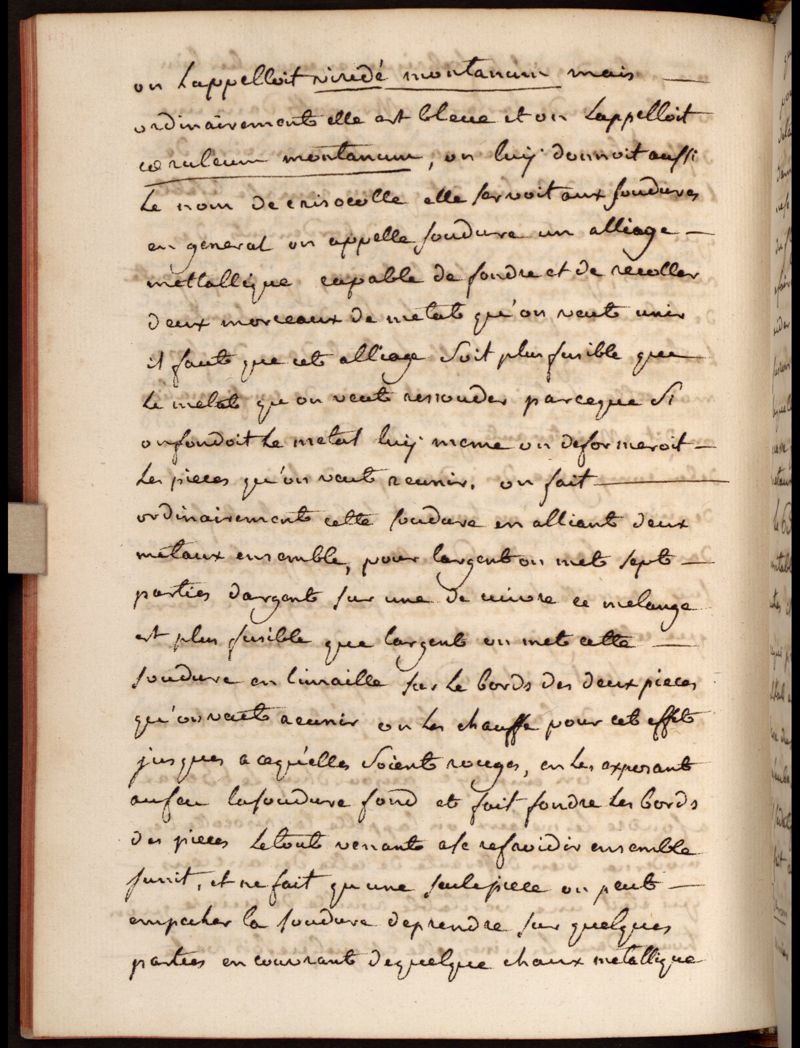 on Lappelloit viredé montanum mais —
ordinairement elle est bleue et on Lappelloit
cœruleum montanum, on luij donnoit aussi
Le nom de crisocolle elle servoit aux soudures
en general on appelle soudure un alliage —
mettallique capable de fondre et de recoller
deux morceaux de metal qu'on veut unir
il faut que cet alliage soit plus fusible que
Le metal qu on veut ressouder parceque si
on fondoit Le metal luij meme on deformeroit —
Les pieces qu'on veut reunir. on fait —
ordinairement cette soudure en alliant deux
metaux ensemble, pour largent on met sept —
parties dargent sur une de cuivre ce melange
est plus fusible que largent on met cette —
soudure en limaille sur Le bords des deux pieces
qu'on veut reunir on Les chauffe pour cet effet
jusques a cequ'elles soient rouges, en Les exposant
au feu la soudure fond et fait fondre Les bords
des pieces Letout venant ase refroidir ensemble
sunit, et ne fait qu une seule piece on peut —
empecher la soudure deprendre sur quelques
parties en couvrant dequelque chaux metallique